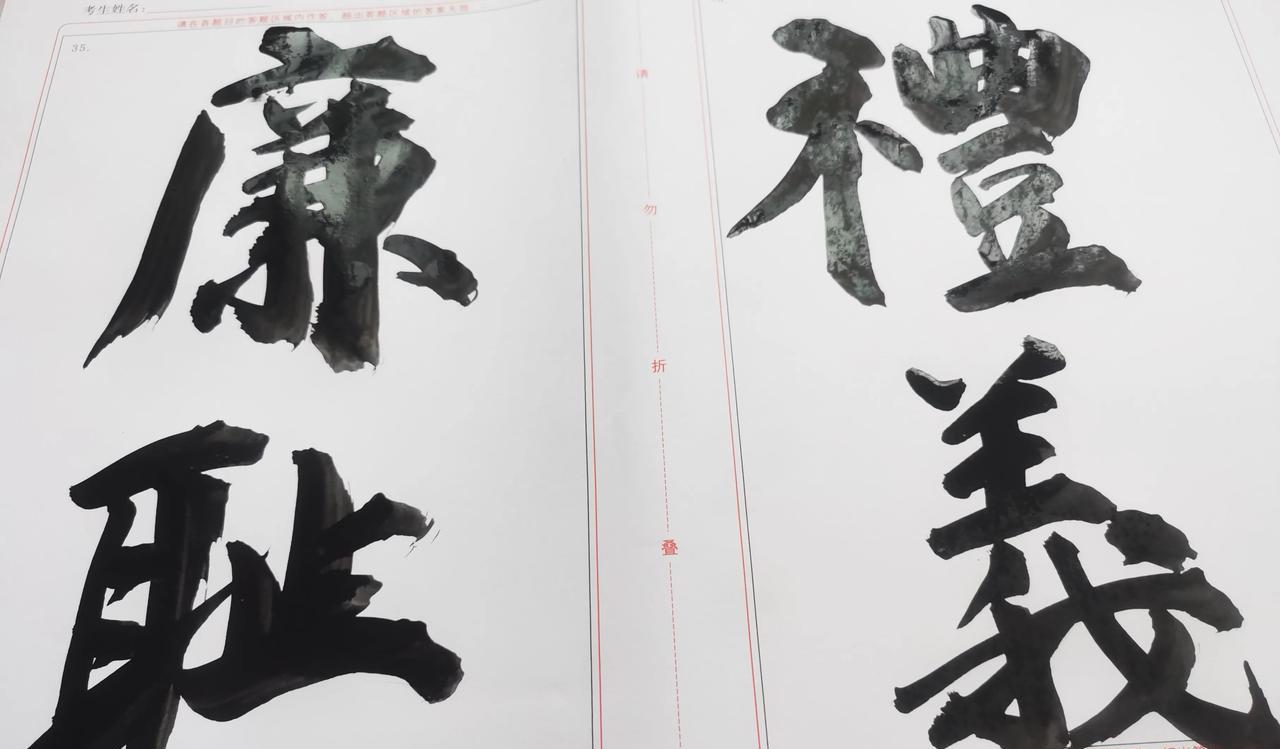 考生姓名:
请在各题目的答题区域内作答，超出答题区域的答案无效
35.
禮
義
廉
耻
请勿折叠